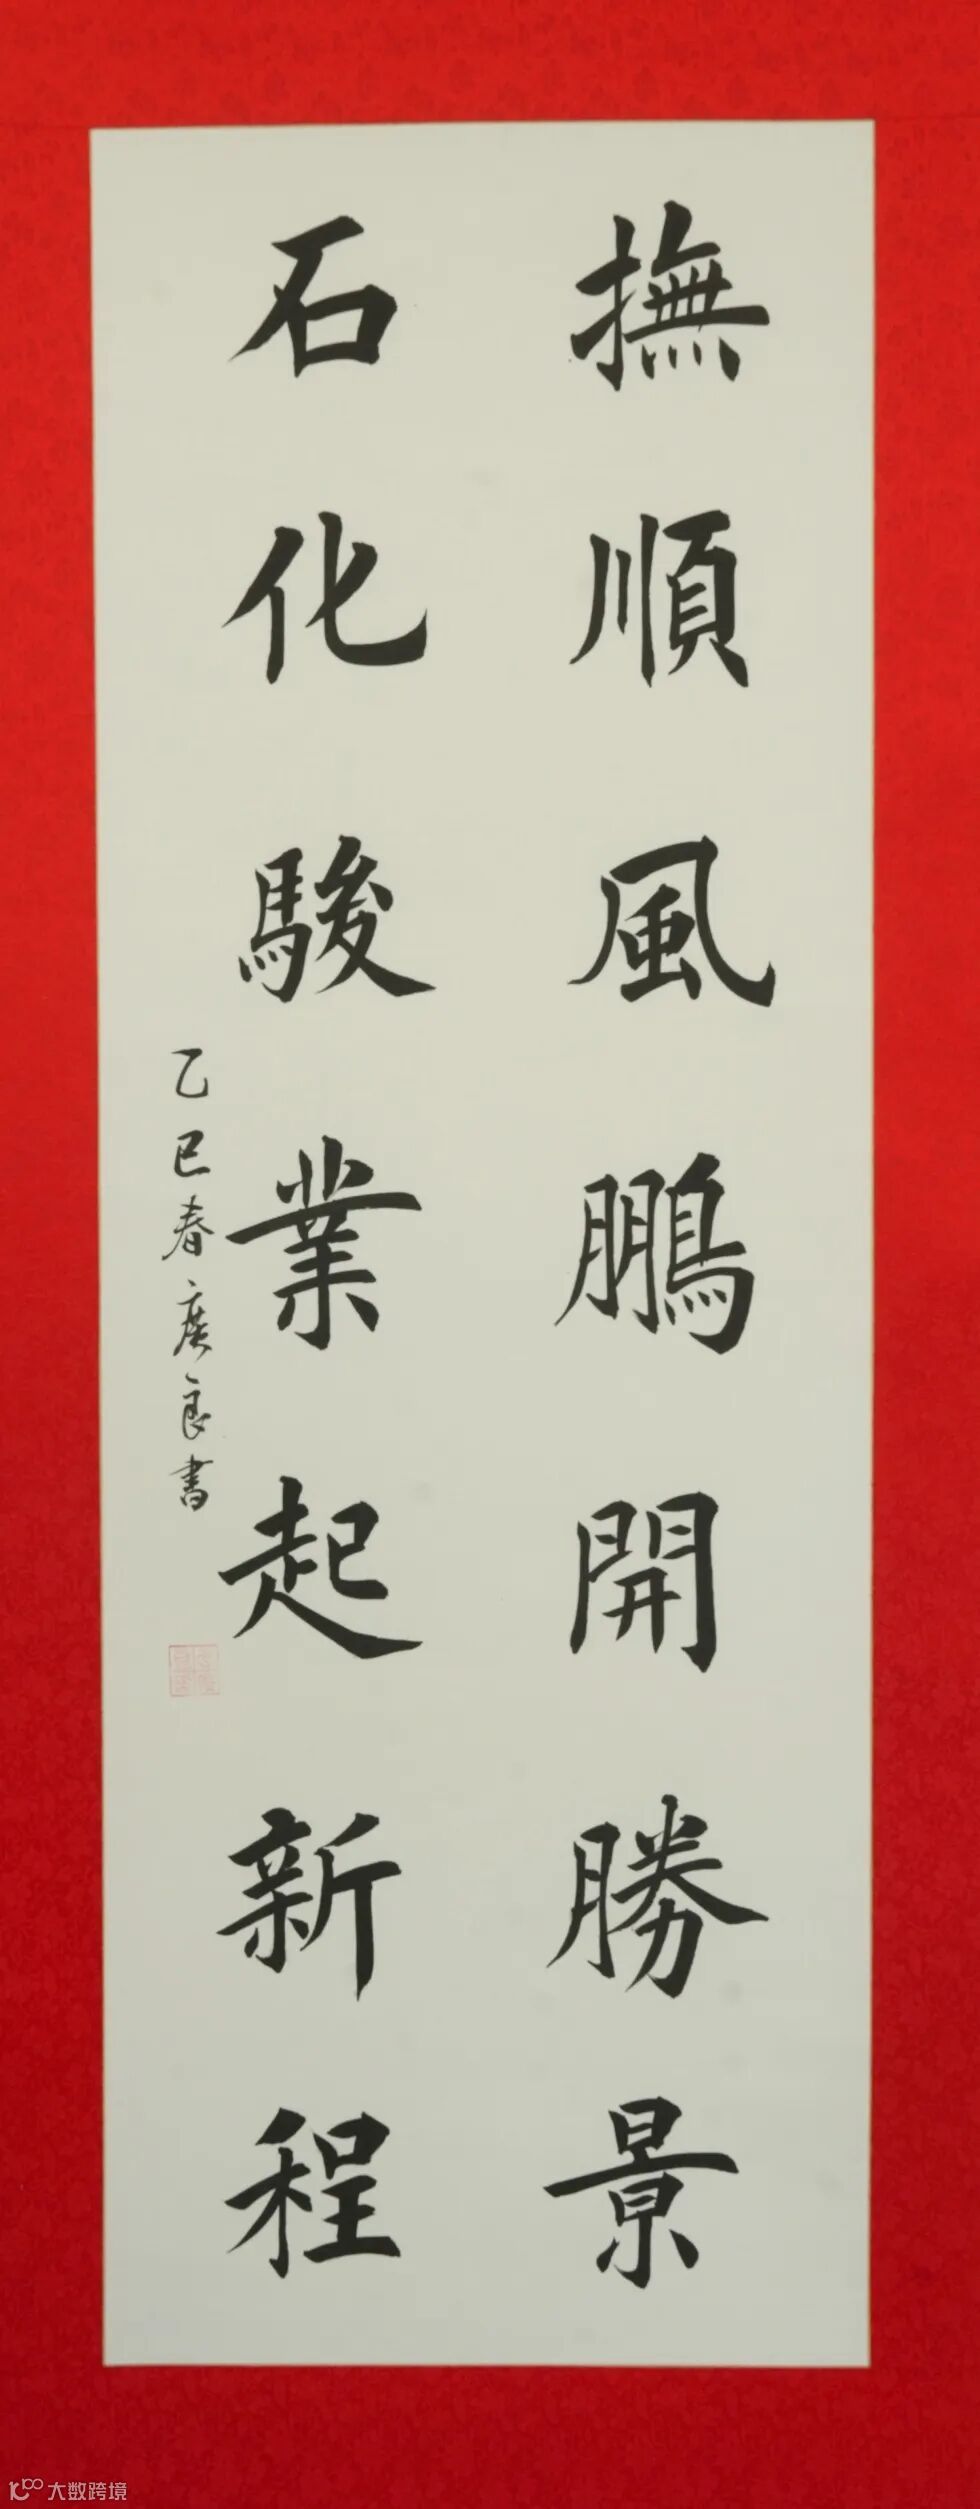 撫順風鵬開勝景
石化駿業起新程
乙巳春廣良書
大数跨境